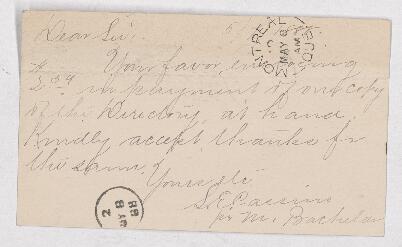 Dear Sir,
MONTREAL
MAY 8
AM
QUE
Your favor, enclosing
in payment of one copy
of the Directory, at hand.
Kindly accept thanks for
the same.
Yours etc
S.E. Cassino
per M. Bachelder
2
MAY 8
88